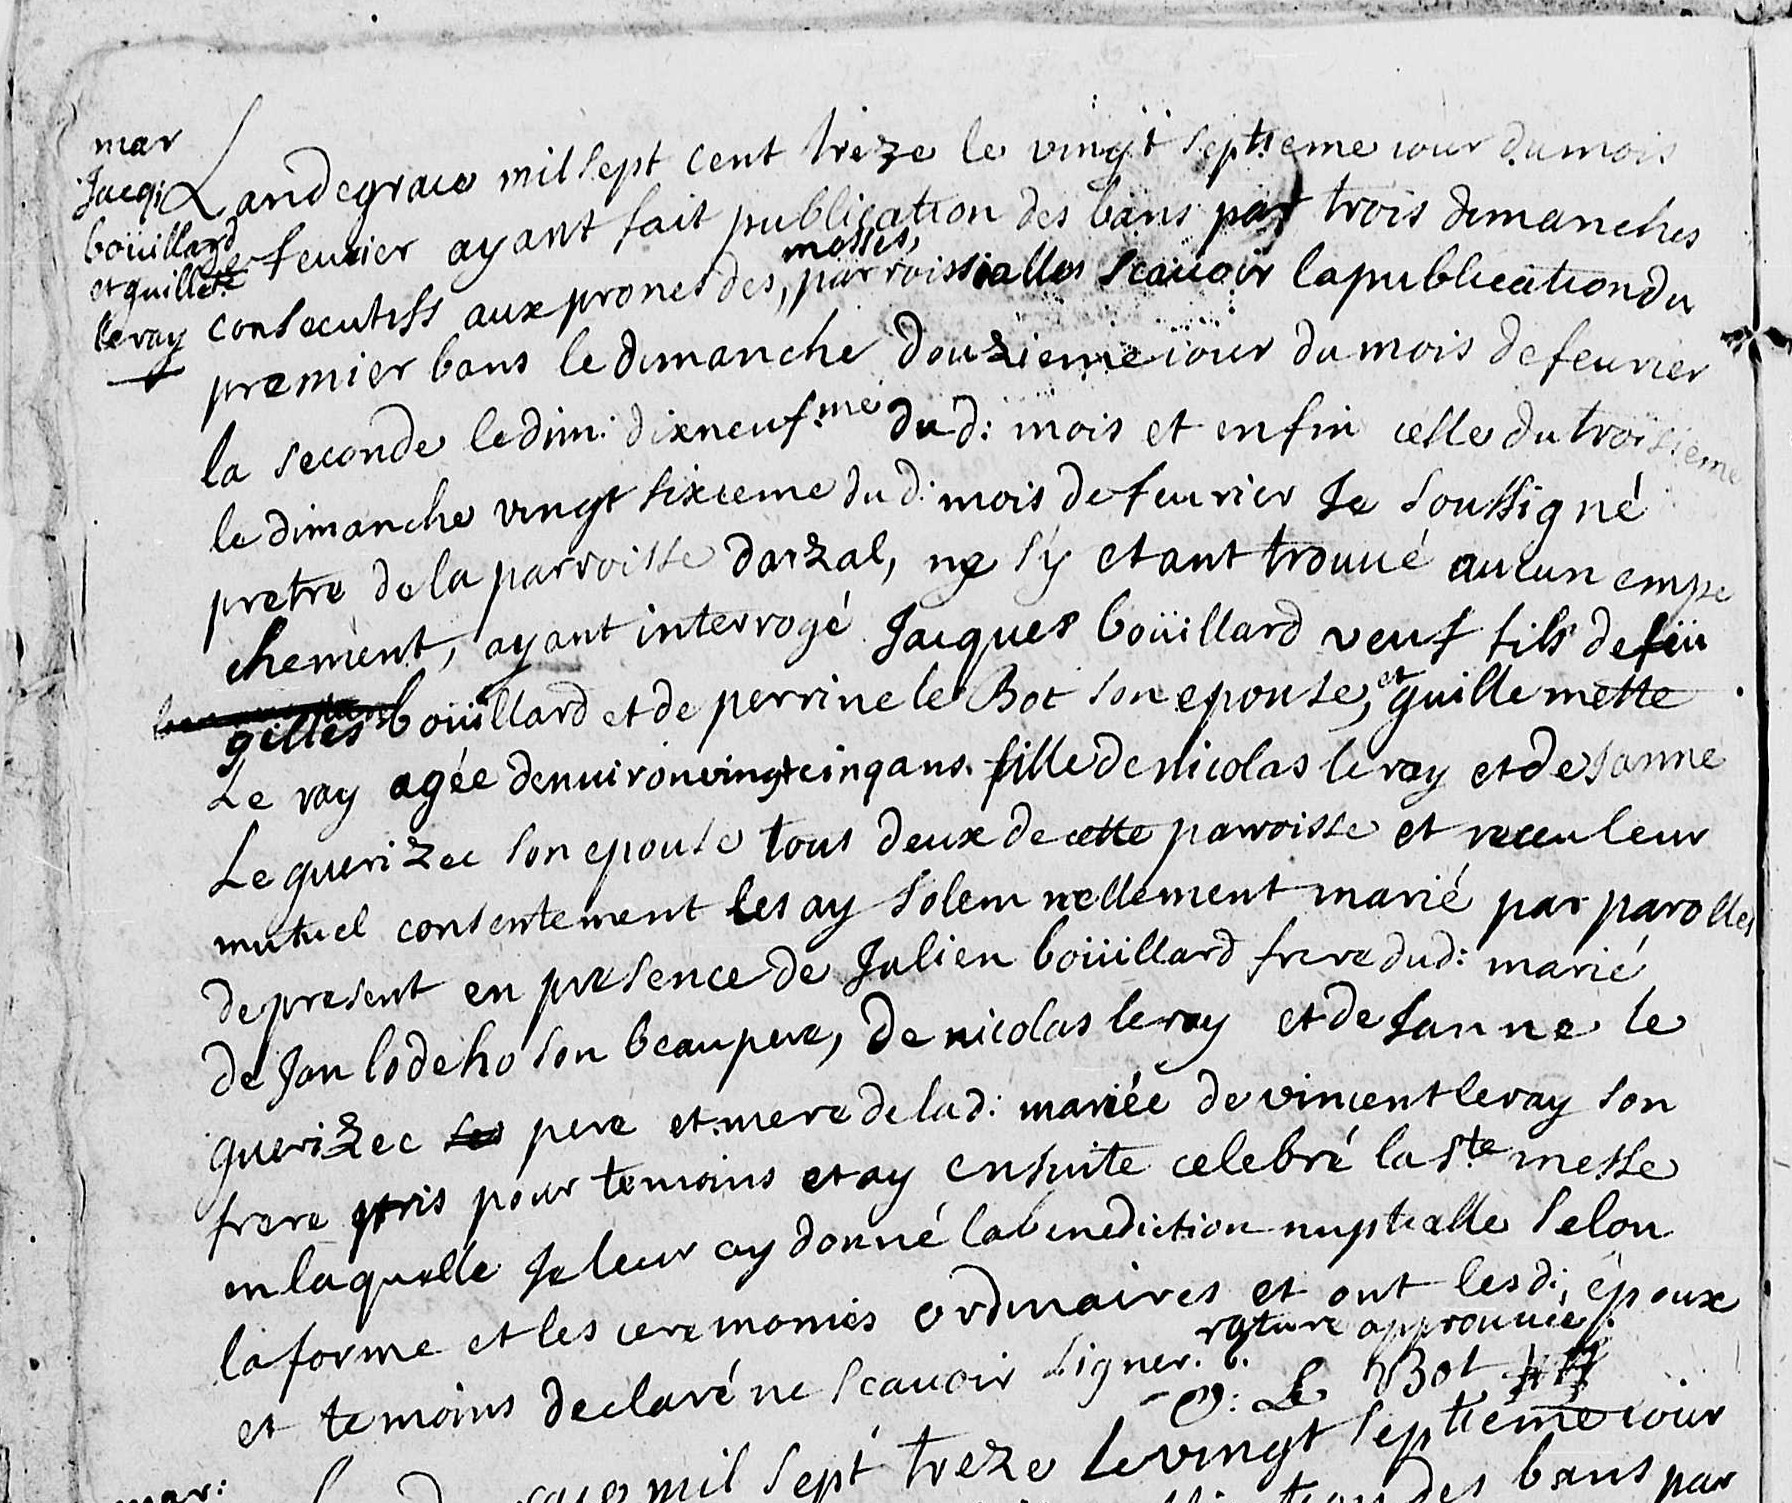 mar
Jacq:
boüillard
et guillete
leray
Lan de grace mil sept cent treze le vingt septieme iour du mois
de feurier ayant fait publication des bans par trois dimanches
consecutifs aux prones des messes, parroissialles scauoir la publication du
premier bans le dimanche douzieme iour du mois de feurier
la seconde le dim: dixneuf.me du d: mois et enfin celle du troisieme
le dimanche vingt sixieme du d: mois de feurier Je soussigné
pretre de la parroisse darzal, ne s'y etant trouué aucun empe
chement, ayant interrogé Jacques boüillard veuf fils de feu
gilles boüillard et de perrine le Bot son epouse, et guillemette
Le ray agée denuiron vingt cinq ans. fille de nicolas le ray et de Janne
Le guerizec son epouse tous deux de cette parroisse et receu leur
mutuel consentement les ay solemnellement marié par parolles
de present en presence de Julien boüillard frere dud: marié
de Jan lodeho son beaupere, de nicolas le ray et de Janne le
guerizec ses pere et mere de lad: mariée de vincent le ray son
frere pris pour temoins et ay ensuite celebré la ste messe
en laquelle Je leur ay donné la benediction nuptialle selon
la forme et les ceremonies ordinaires et ont lesd: époux
et temoins declaré ne scauoir signer. rature approuuée
Le Bot
mar:
mil sept treze Le vingt septiéme iour
des bans par